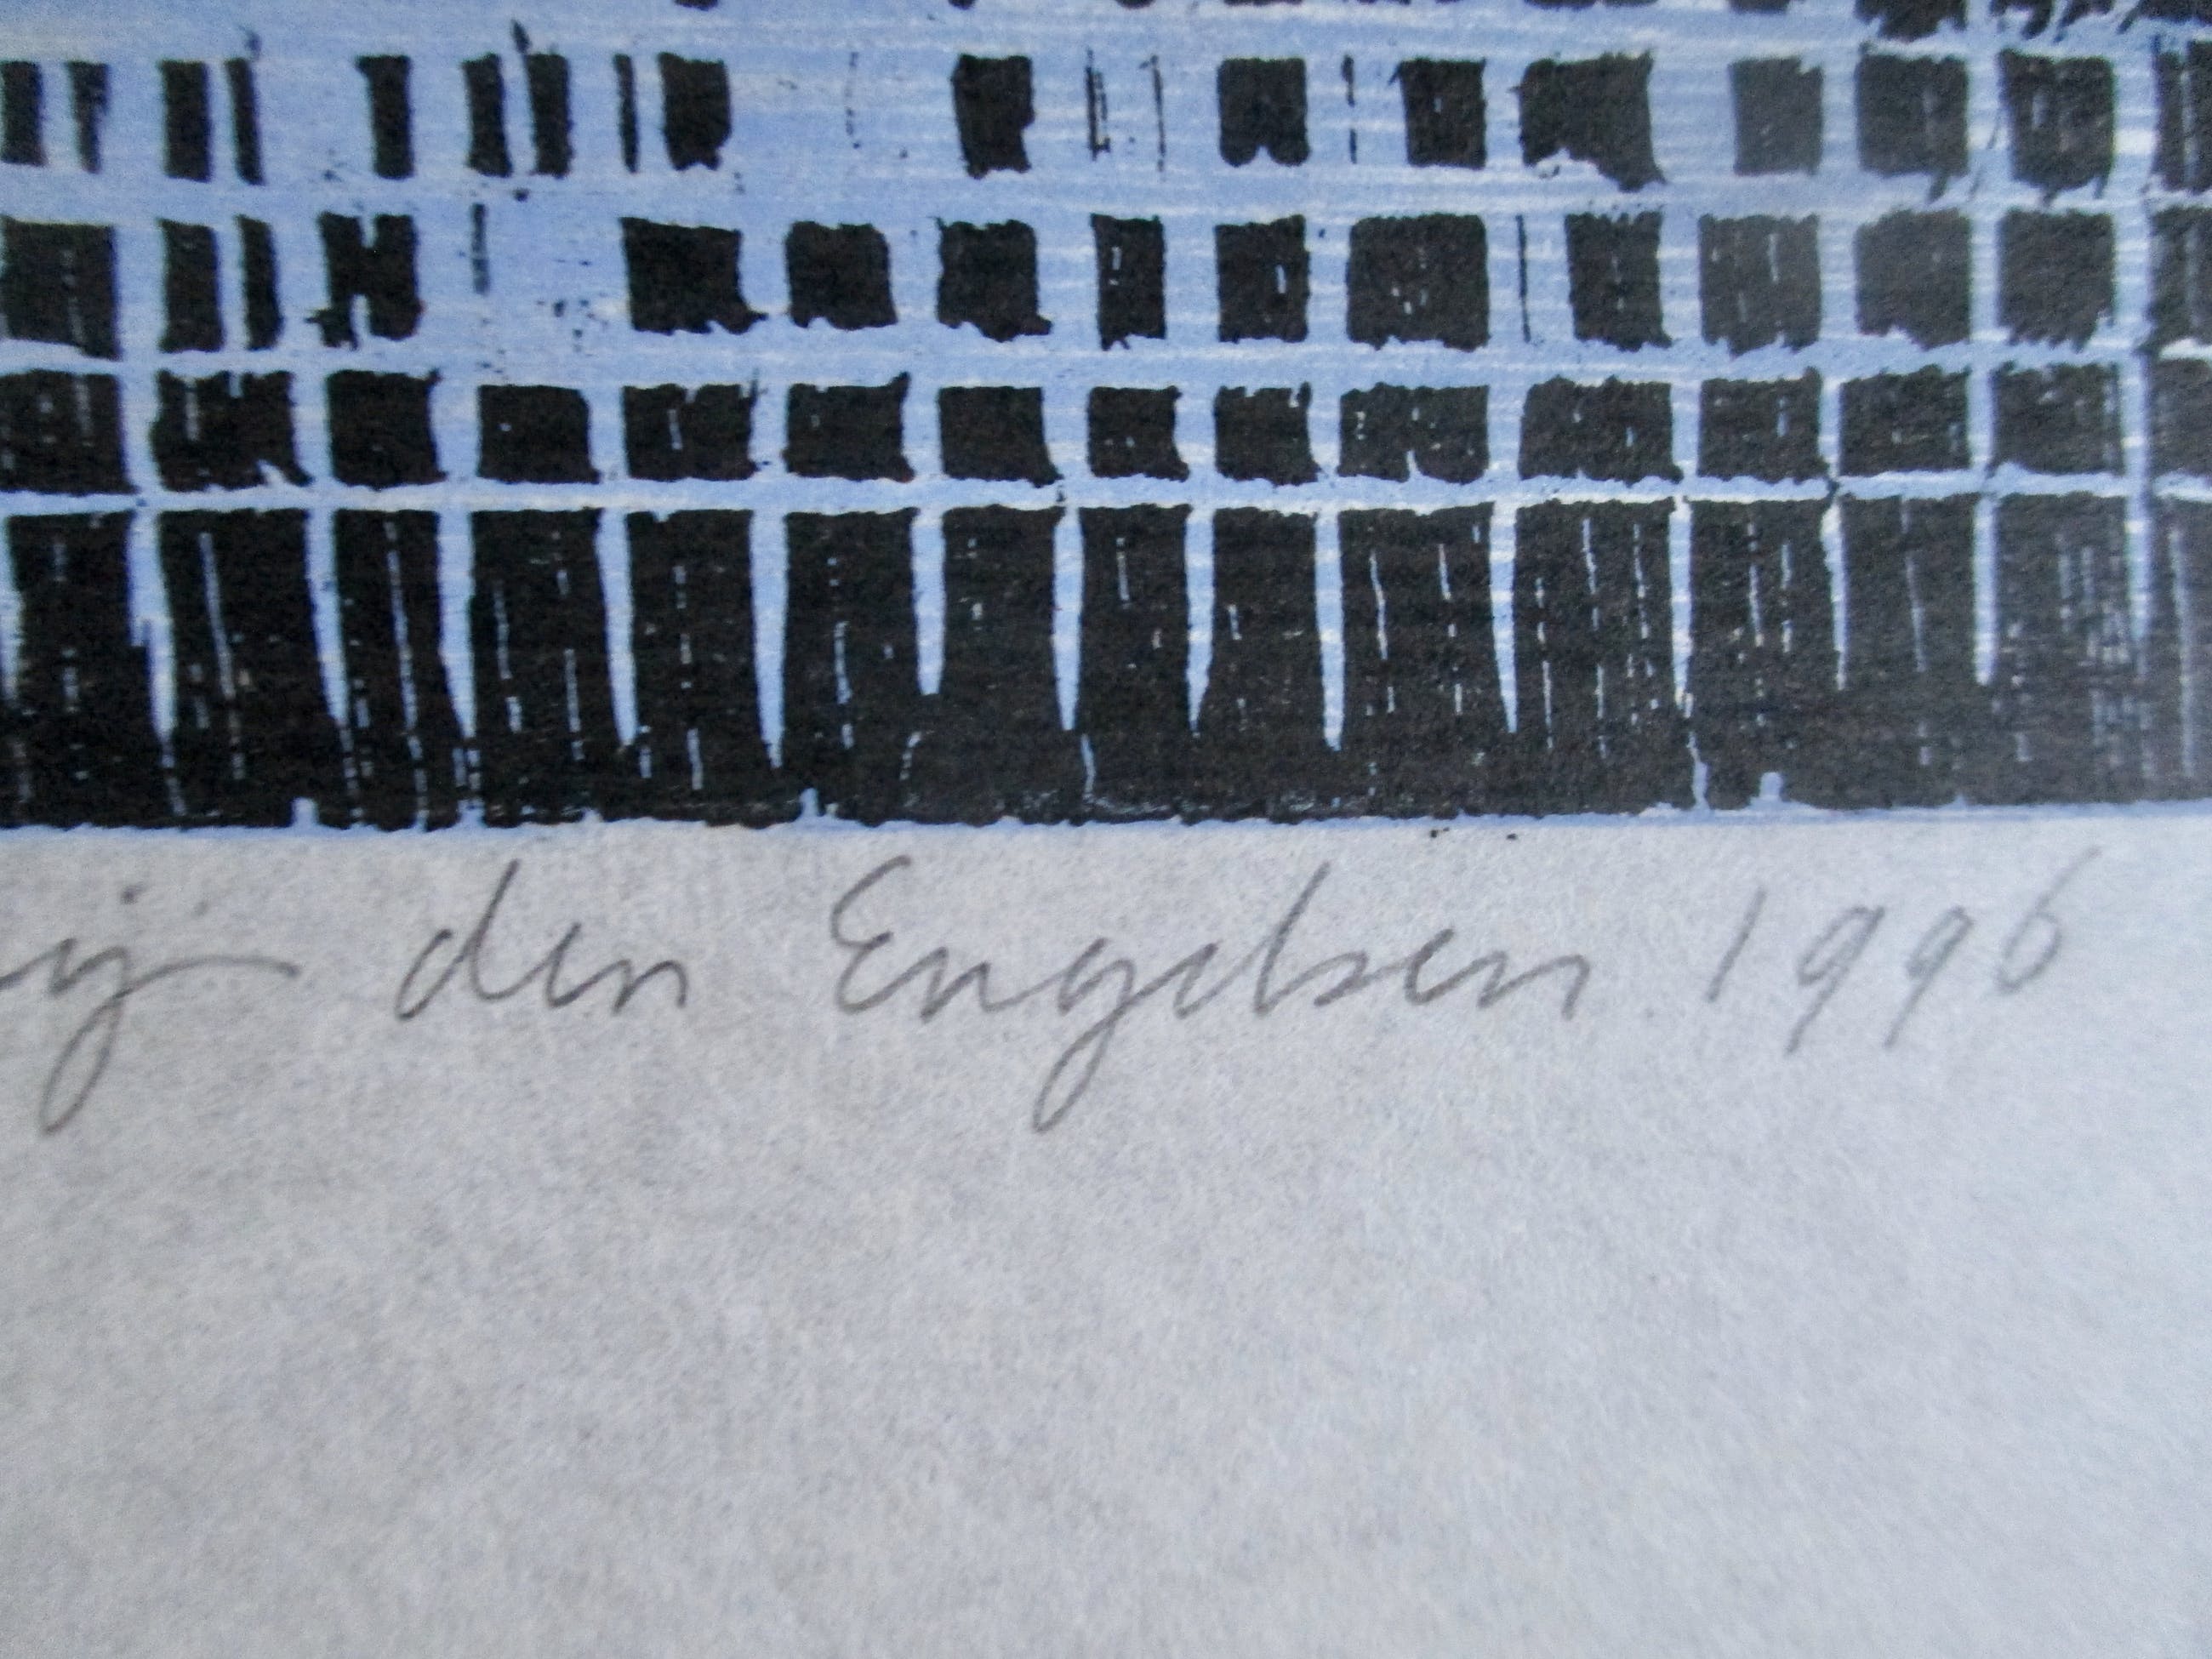 ij den Engelsen 1996